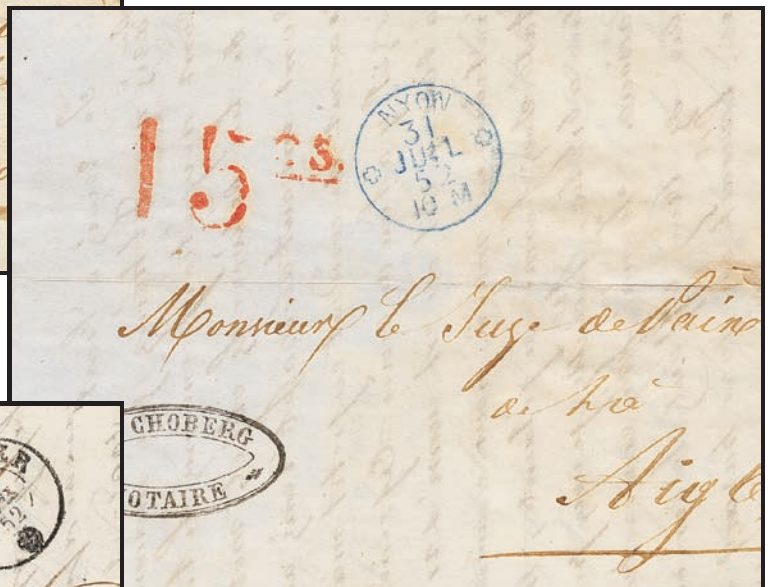 15 cs.
NYON
31
JUIL
52
10 M
Monsieur le Juge de Paix
de
Aigle
CHOBERG
OTAIRE
52